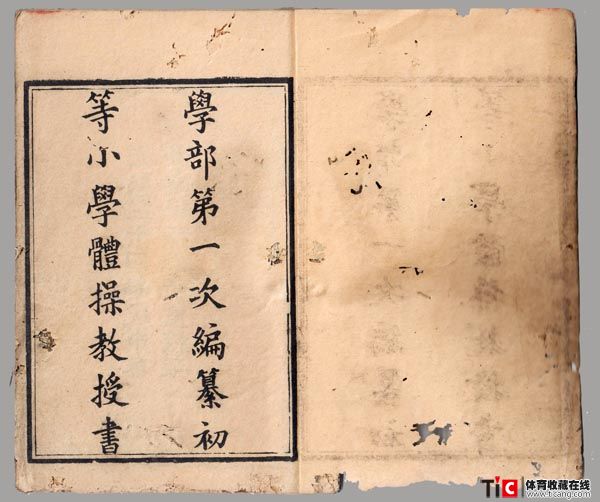 學部第一次編纂初
等小學體操教授書
TIC 体育收藏在线
www.ticang.com